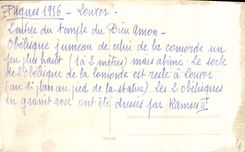 Pâques 1936 - Louxor -
L'entrée du temple du Dieu Amon -
Obélisque jumeau de celui de la concorde un
peu plus haut (1 à 2 mètres) mais abîmé. Le socle
de l'obélisque de la concorde est resté à Louxor
(au 1er plan au pied de la statue). Les 2 obélisques
en granit rose ont été dressés par Ramsès II